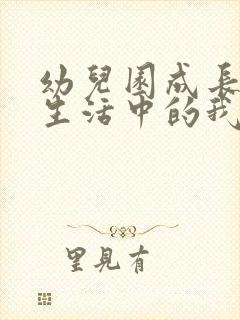 幼兒園成長
生活中的我
里見有